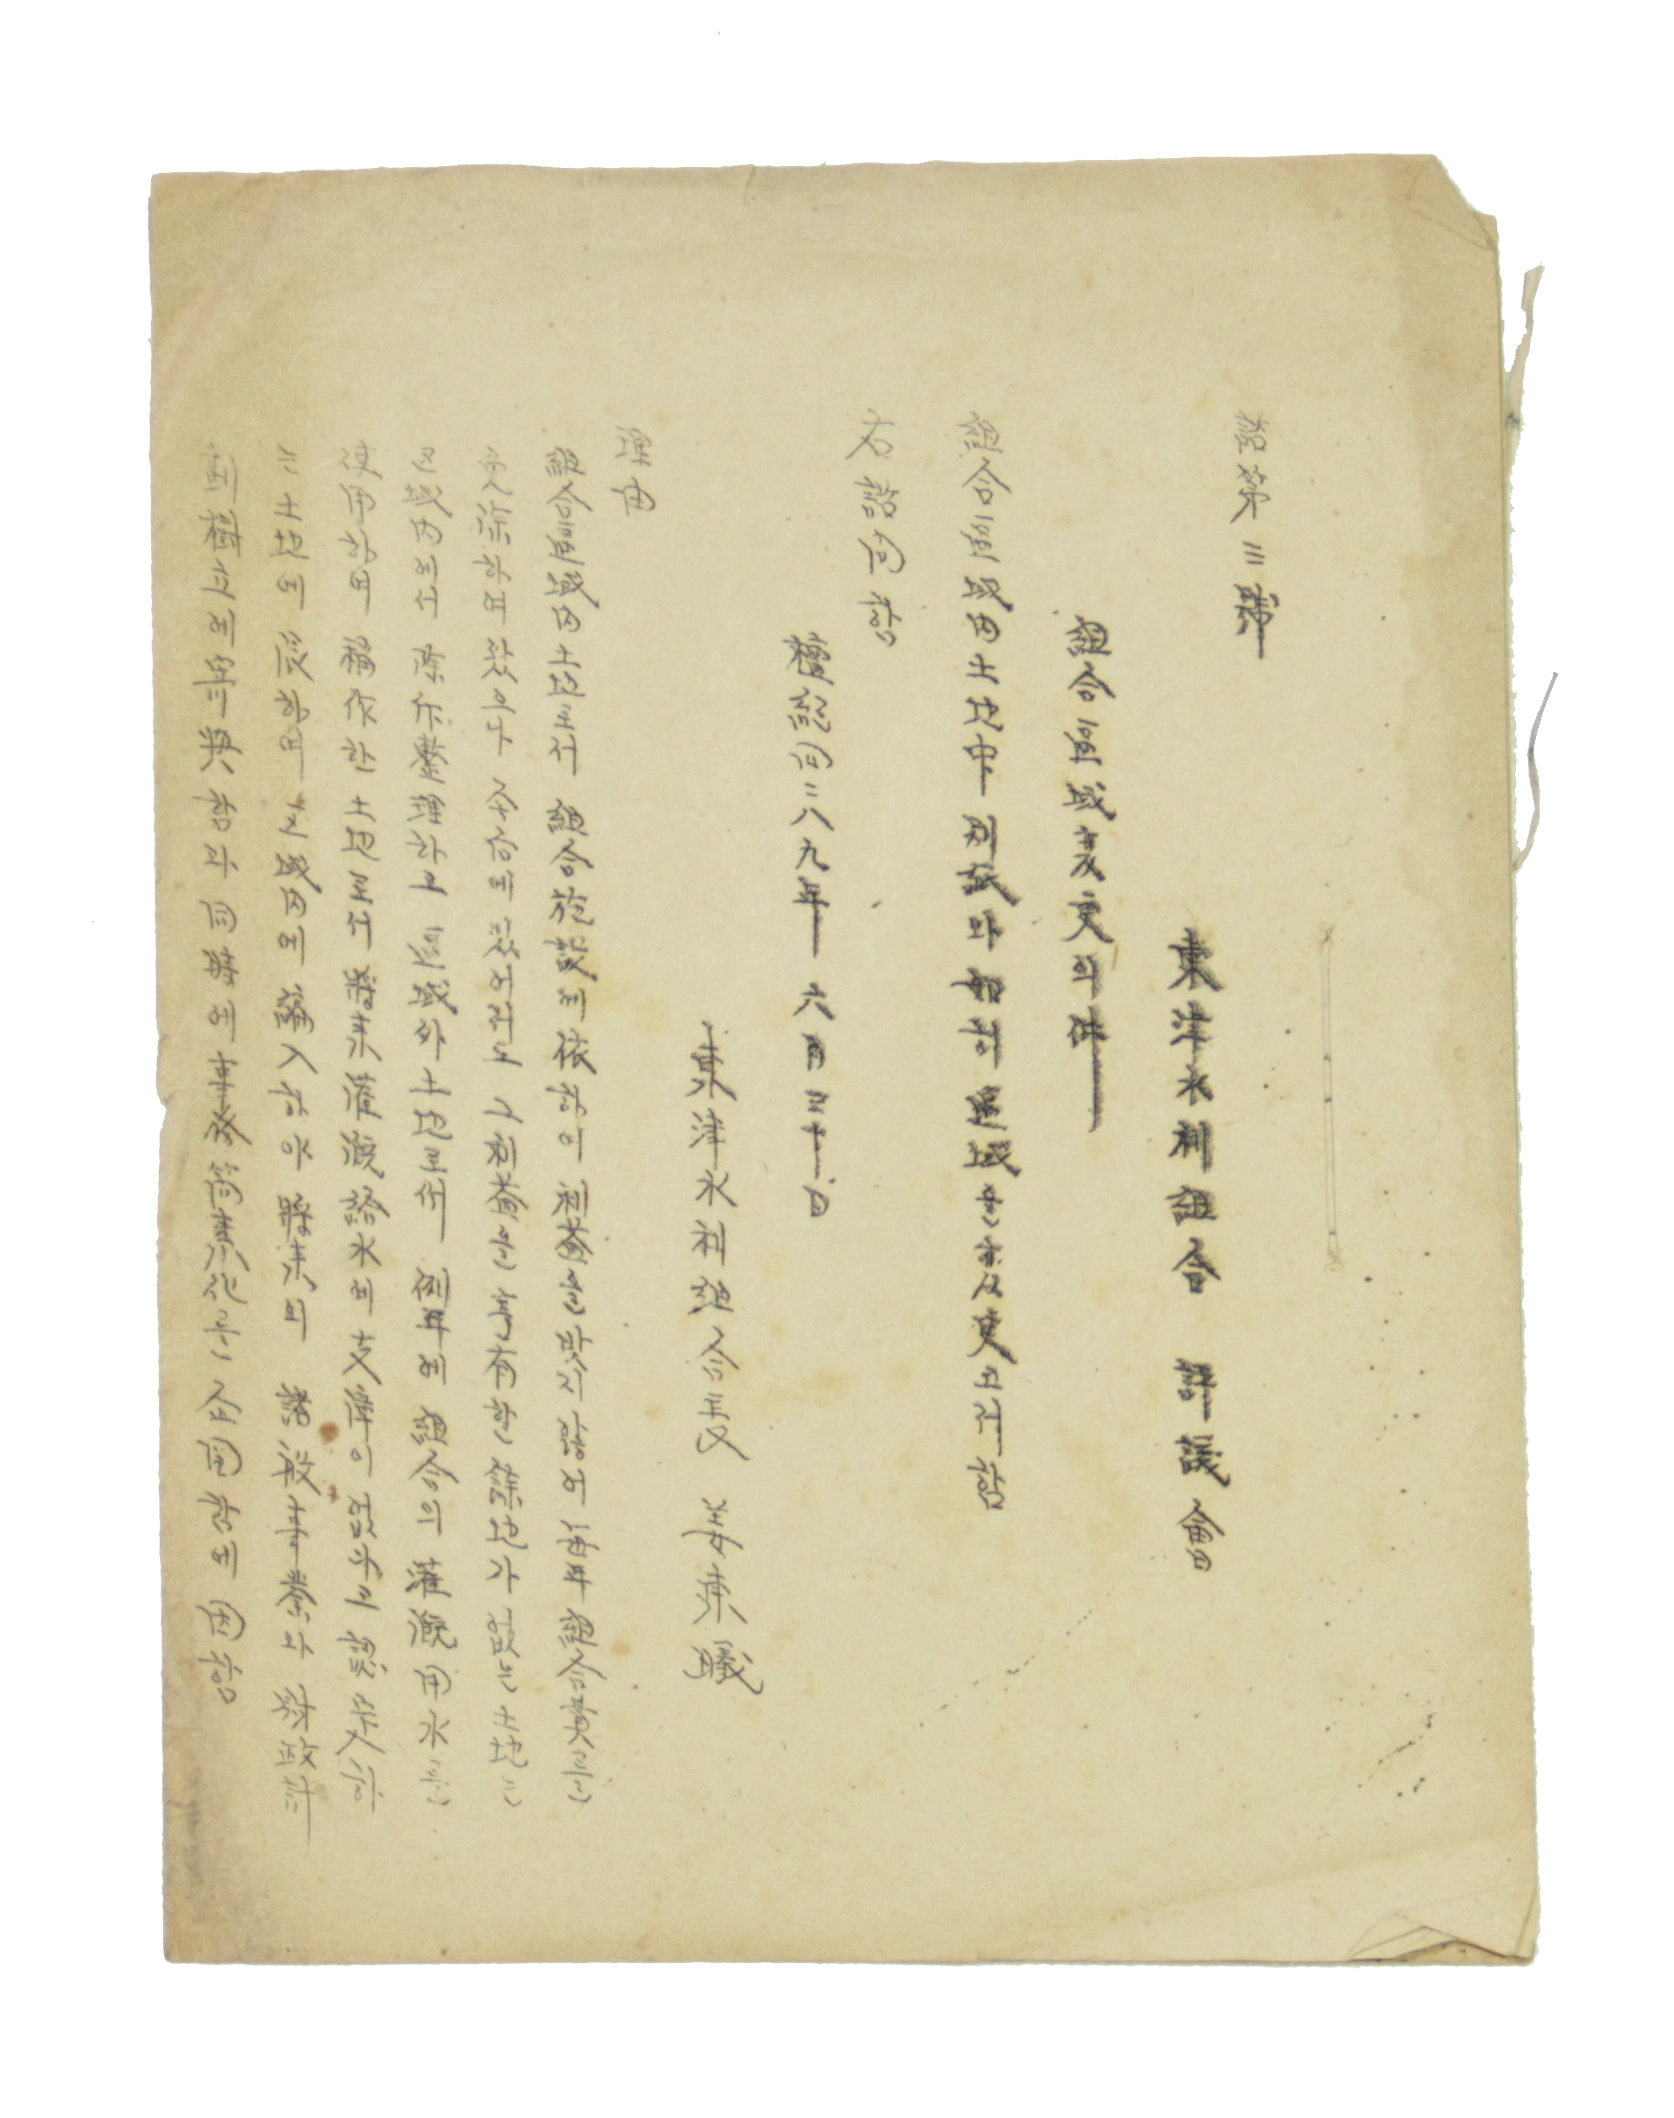 諮第三號
東津水利組合 評議會
組合區域變更의件
組合區域內土地中 別紙와如히 區域을變更코저함
右諮問함
檀紀四二八九年 六月三十日
東津水利組合長 姜東曦
理由
組合區域內土地로서 組合施設에依하여 利益을받지않어 每年組合費를
免除하여왔으나 今后에있어서도 그利益을享有할餘地가없는土地는
区域內에서 除外整理하고 區域外土地로서 例年에組合의灌漑用水를
使用하여 稲作한土地로서 將來灌漑給水에支障이없다고認定하
는土地에限하여 区域內에編入하야 將來의 諸般事業과財政計
劃樹立에 함과同時에事務簡素化를企圖함에因함